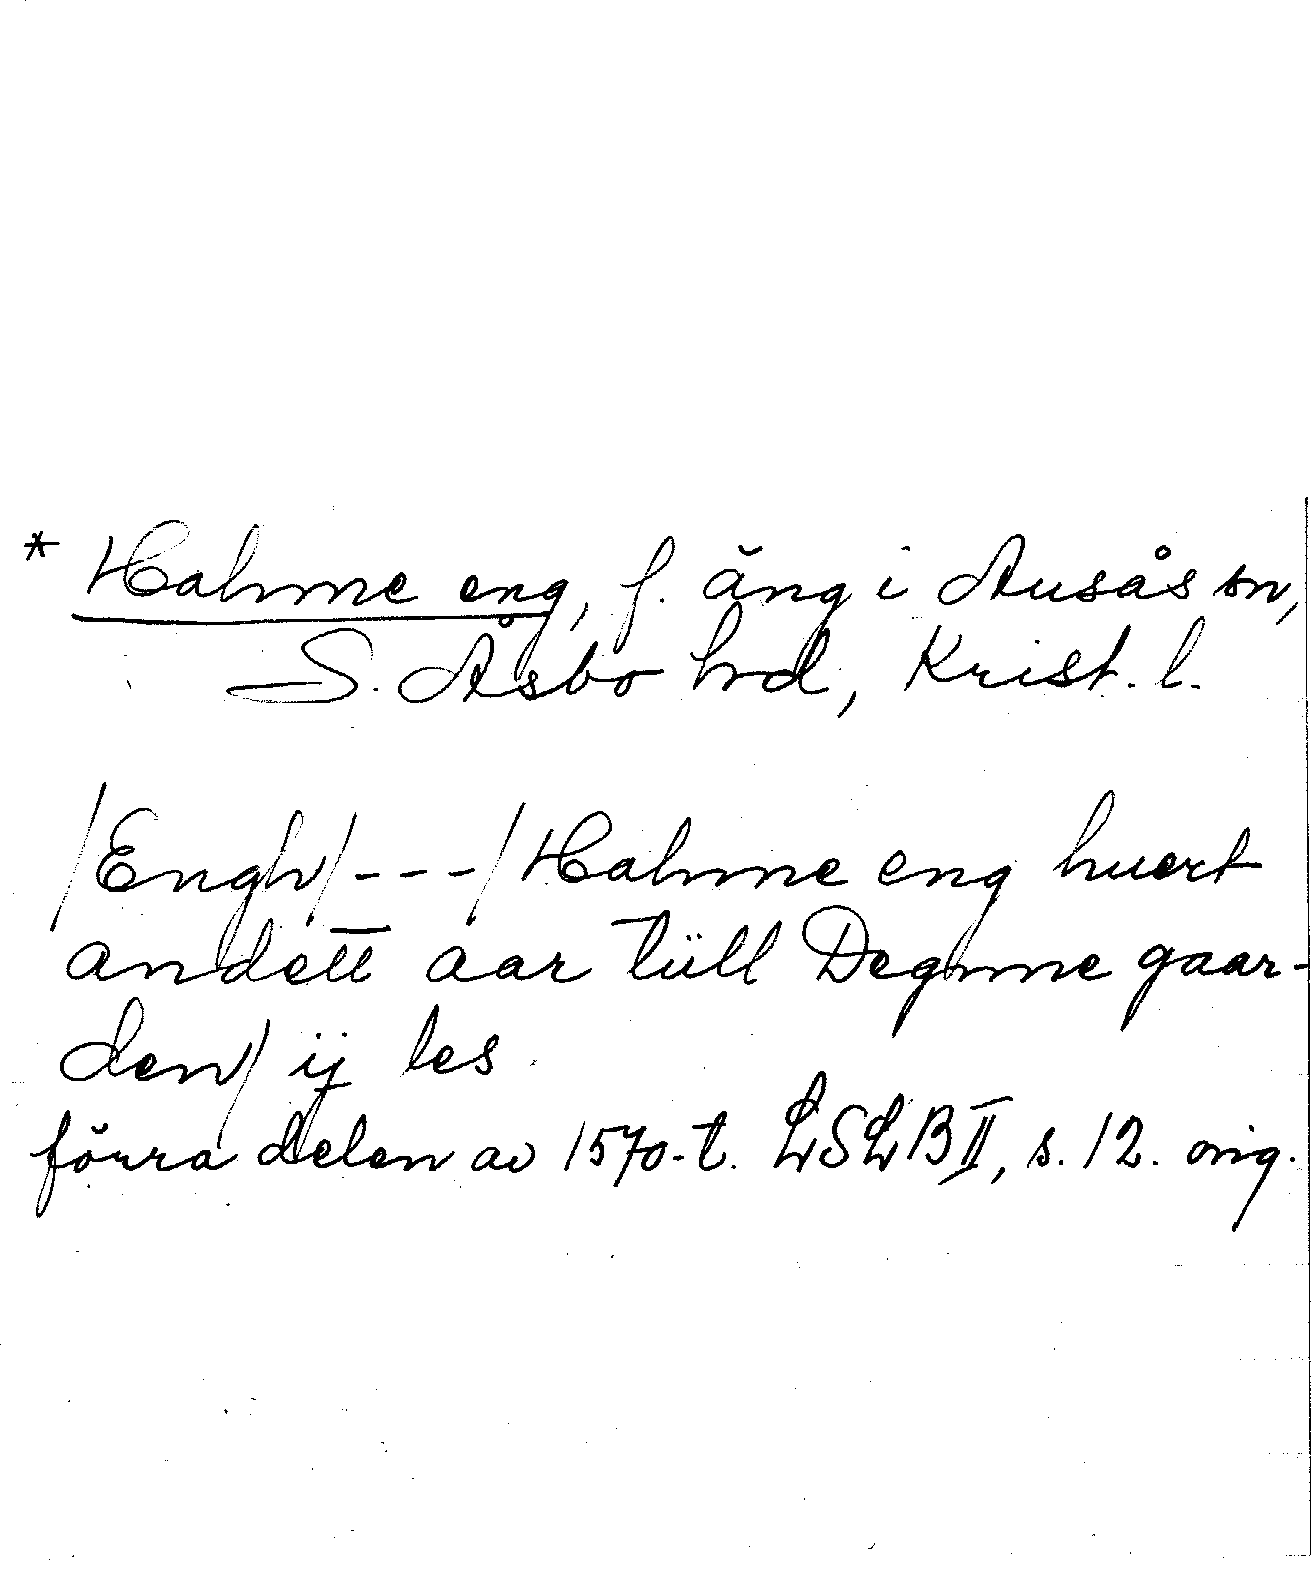 * Halmme eng, f. äng i Ausås sn,
S. Åsbo hrd, Krist. l.
/Engh/---/Halmme eng huert
andett aar tüll Degnne gaar-
den/ ij les
förra delen av 1570-t. LSLB II, s. 12. orig.